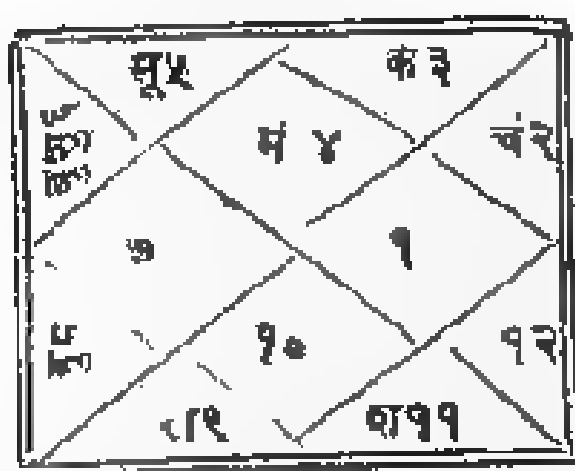 सू५
के ३
मं ४
चं २
७
१
१०
१२
रा९
श११